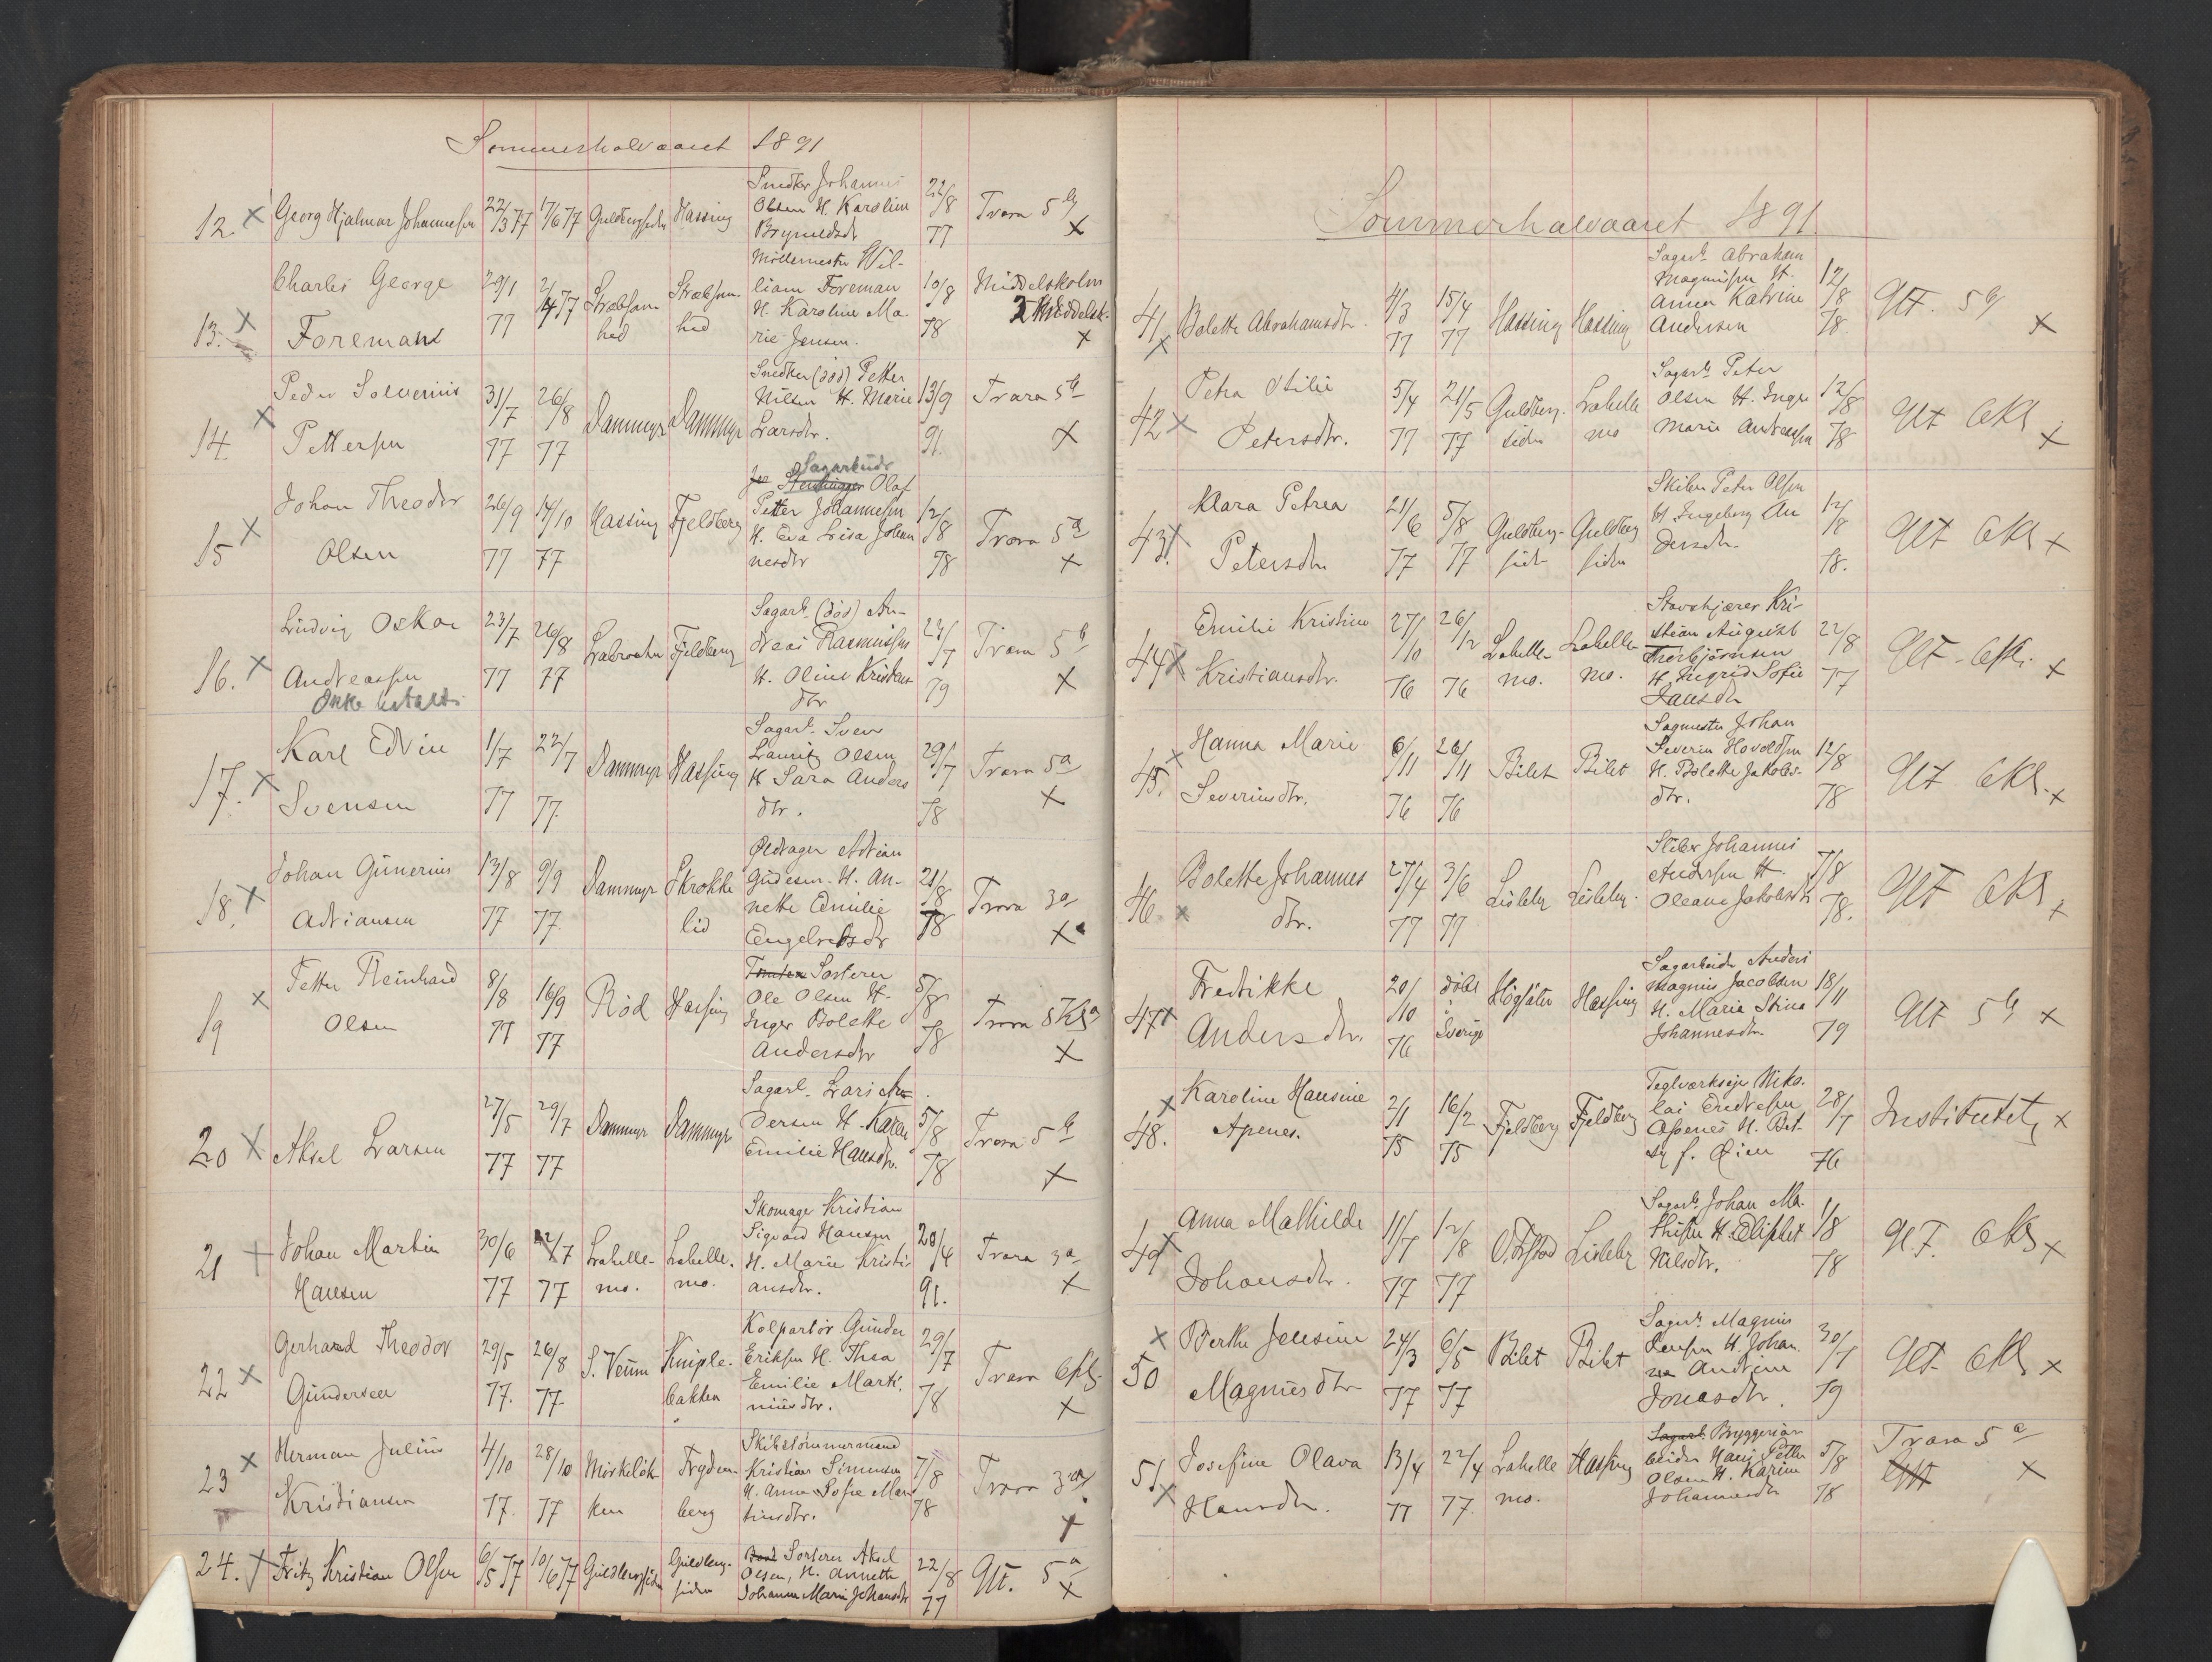 Sommerhalvaaret 1891
12. X Georg Hjalmar Johannessen 22/3 77 17/6 77 Guldbergsiden Hassing Snedker Johannes Olsen H. Karoline Bryneldsdr 22/8 77 Trara 5b X
13. X Charles George Foreman 29/1 77 2/4 77 Møllemester William Foreman H. Karoline Marie Jensen. 10/8 78 Middelskolen X
14. X Peder Severinus Pettersen 31/7 77 26/8 77 Dammyr Dammyr Snedker (død) Petter Nilsen H. Marie Larsdtr. 13/9 91. Trara 5b X
15 X Johan Theodor Olsen 26/9 77 14/10 77 Hassing Fjeldberg Sagarbeider Olaf Petter Johannesen H. Eva Lisa Johannesdtr 12/8 78 Trara 5a X
16. X Ludvig Oskar Andreassen 23/7 77 26/8 77 Fjeldberg Sagarb. (død) Andreas Rasmussen H. Oline Kristensdtr 23/7 79 Trara 5b X
Ikke betalt
17. X Karl Edvin Svensen 1/7 77 22/7 77. Dammyr Hassing Sagarb. Sven Lauritz Olsen H Sara Andersdtr. 29/7 78 Trara 5a X
18. X Johan Gunerius Adriansen 13/8 77 9/9 77. Dammyr Skrokkelid Øldtager Adrian Gudesen. H. Annette Emilie Engelretsdr 21/8 78 Trara 3a X
19 X Petter Reinhard Olsen 8/8 77 16/9 77 Rød Hassing Sorterer Ole Olsen H. Inger Bolette Andersdtr 5/8 78 Trara 5Kl a X
20 X Aksel Larsen 27/5 77 29/7 77 Dammyr Dammyr Sagarb. Lars Andersen H. Karen Emilie Hansdtr. 5/8 78 Trara 5b X
21 + Johan Martin Hansen 30/6 77 22/7 77 Labellemo. Labellemo. Skomager Kristian Sigvard Hansen H. Marie Kristiansdtr. 20/4 91. Trara 3a X
22 X Gerhard Theodor Gundersen 29/5 77. 26/8 77. S. Veum Kniplebakken Kolportør Gunder Eriksen H. Thea Emilie Martiniusdtr. 29/7 78 Trara 6Kl. X
23 X Herman Julius Kristiansen 4/10 77. 28/10 77 Mørkeløkken Trydenberg Skibstømmermand Kristian Simensen H. Anna Sofie Martinsdtr. 7/8 78 Trara 3a X
24. X Fritz Kristian Olsen 6/5 77 10/6 77 Guldbergsiden Guldbergsiden Sorterer Aksel Olsen, H. Annette Johanne Marie Johansdtr 22/8 77 Glt. 5a X
Sommerhalvaaret 1891
41. X Bolette Abrahamsdtr. 4/3 77 15/4 77 Hassing Hassing Sagarb. Abraham Magnussen H. Anna Katrine Andersen 12/8 78 Glt. 5b X
42 X Petra Otilie Petersdtr. 5/4 77 21/5 77 Guldbergsiden Labellemo Sagarb. Peter Olsen H. Inger Marie Andreassen 12/8 78 Glt 6Kl X
43. X Klara Petrea Petersdtr 21/6 77 5/8 77 Guldbergsiden Guldbergsiden Skiber Peter Olsen H. Ingeborg Andersdtr. 12/8 78. Glt 6Kl X
44 X Emilie Kristine Kristiansdtr. 27/10 76 26/12 76 Labellemo. Labellemo. Stavskjærer Kristian August Thorbjørnsen H. Ingrid Sofie Jansdtr 22/8 77 Glt. 6Kl. X
45. X Hanna Marie Severinsdtr. 6/11 76 26/11 76 Bilet Bilet Sagmester Johan Severin Hovoldsen H. Bolette Jakobsdtr. 12/8 78 Glt 6Kl. X
46. X Bolette Johannesdtr. 27/4 77 3/6 77 Lisleby Lisleby. Johannes Andersen H. Oleane Jakobsdtr 7/8 78. Glt 6Kl. X
47 X Fredrikke Andersdtr. 20/10 76 døbt i Sverige Hassing Sagarbeider Anders Magnus Jacobsen H. Maria Stina Johannesdtr. 18/11 79 Glt 5b X
48. X Karoline Hansine Apenes. 2/1 75 16/2 75 Fjeldberg Fjeldberg Teglværkseier Nikolai Apenes H. Betzy f. Øien 28/7 76 Institutet X
49 X Anna Mathilde Johansdtr. 11/7 77 12/8 77 Lisleby Sagarb. Johan H. Elisabet Nilsdtr. 1/8 78 Glt. 6Kl X
50 X Berthe Jensine Magnusdtr 24/3 77 6/5 77 Bilet Bilet Sagarb. Magnus Jensen H. Johanne Andrine Jonasdtr. 30/7 79 Glt 6Kl X
51. X Josefine Olava Hansdtr. 13/4 77 22/4 77. Labellemo. Hassing Bryggeriarbeider Hans Petter Olsen H. Karine Johannesdtr 5/8 78 Trara 5a X